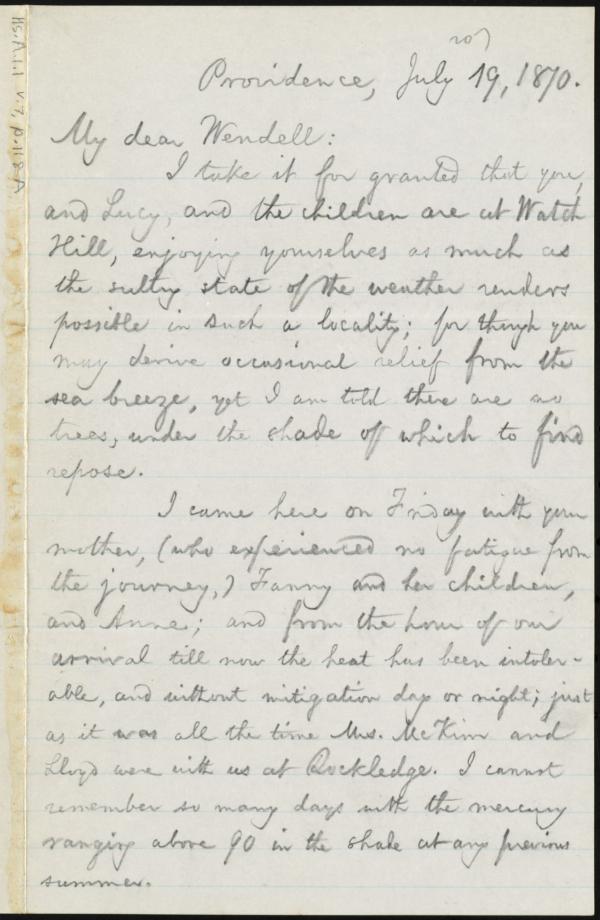 Ms.A.1.1 v.7, p.118A
Providence, July 19, 1870.
My dear Wendell:
I take it for granted that you,
and Lucy, and the children are at Watch
Hill, enjoying yourselves as much as
the sultry state of the weather renders
possible in such a locality; for though you
may derive occasional relief from the
sea breeze, yet I am told there are no
trees, under the shade of which to find
repose.
I came here on Friday with your
mother, (who experienced no fatigue from
the journey,) Fanny and her children,
and Anne; and from the hour of our
arrival till now the heat has been intoler-
able, and without mitigation day or night; just
as it was all the time Mrs. McKim and
Lloyd were with us at Rockledge. I cannot
remember so many days with the mercury
ranging above 90 in the shade at any previous
summer.